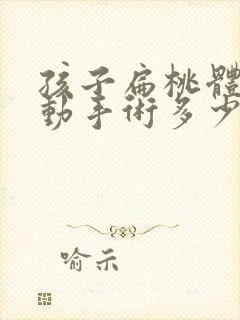 孩子扁桃體
動手術多少
喻示